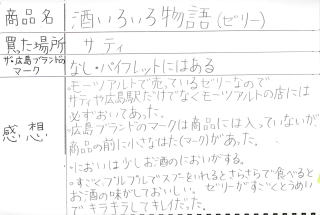 商品名 酒いろいろ物語(ゼリー)
買った場所 サティ
ザ・広島ブランドの
マーク
なし・パイフレットにはある
感想
・モーツアルトで売っているゼリーなので
サティや広島駅だけでなくモーツアルトの店には
必ずおいてあった。
・広島ブランドのマークは商品には入っていないが
商品の前に小さなはた(マーク)があった。
・においは少しお酒のにおいがする。
・すごくプルプルでスプーンをいれるとさらさらで食べると
お酒の味がしておいしい。ゼリーがすごくとうめい
でキラキラしてキレイだった。